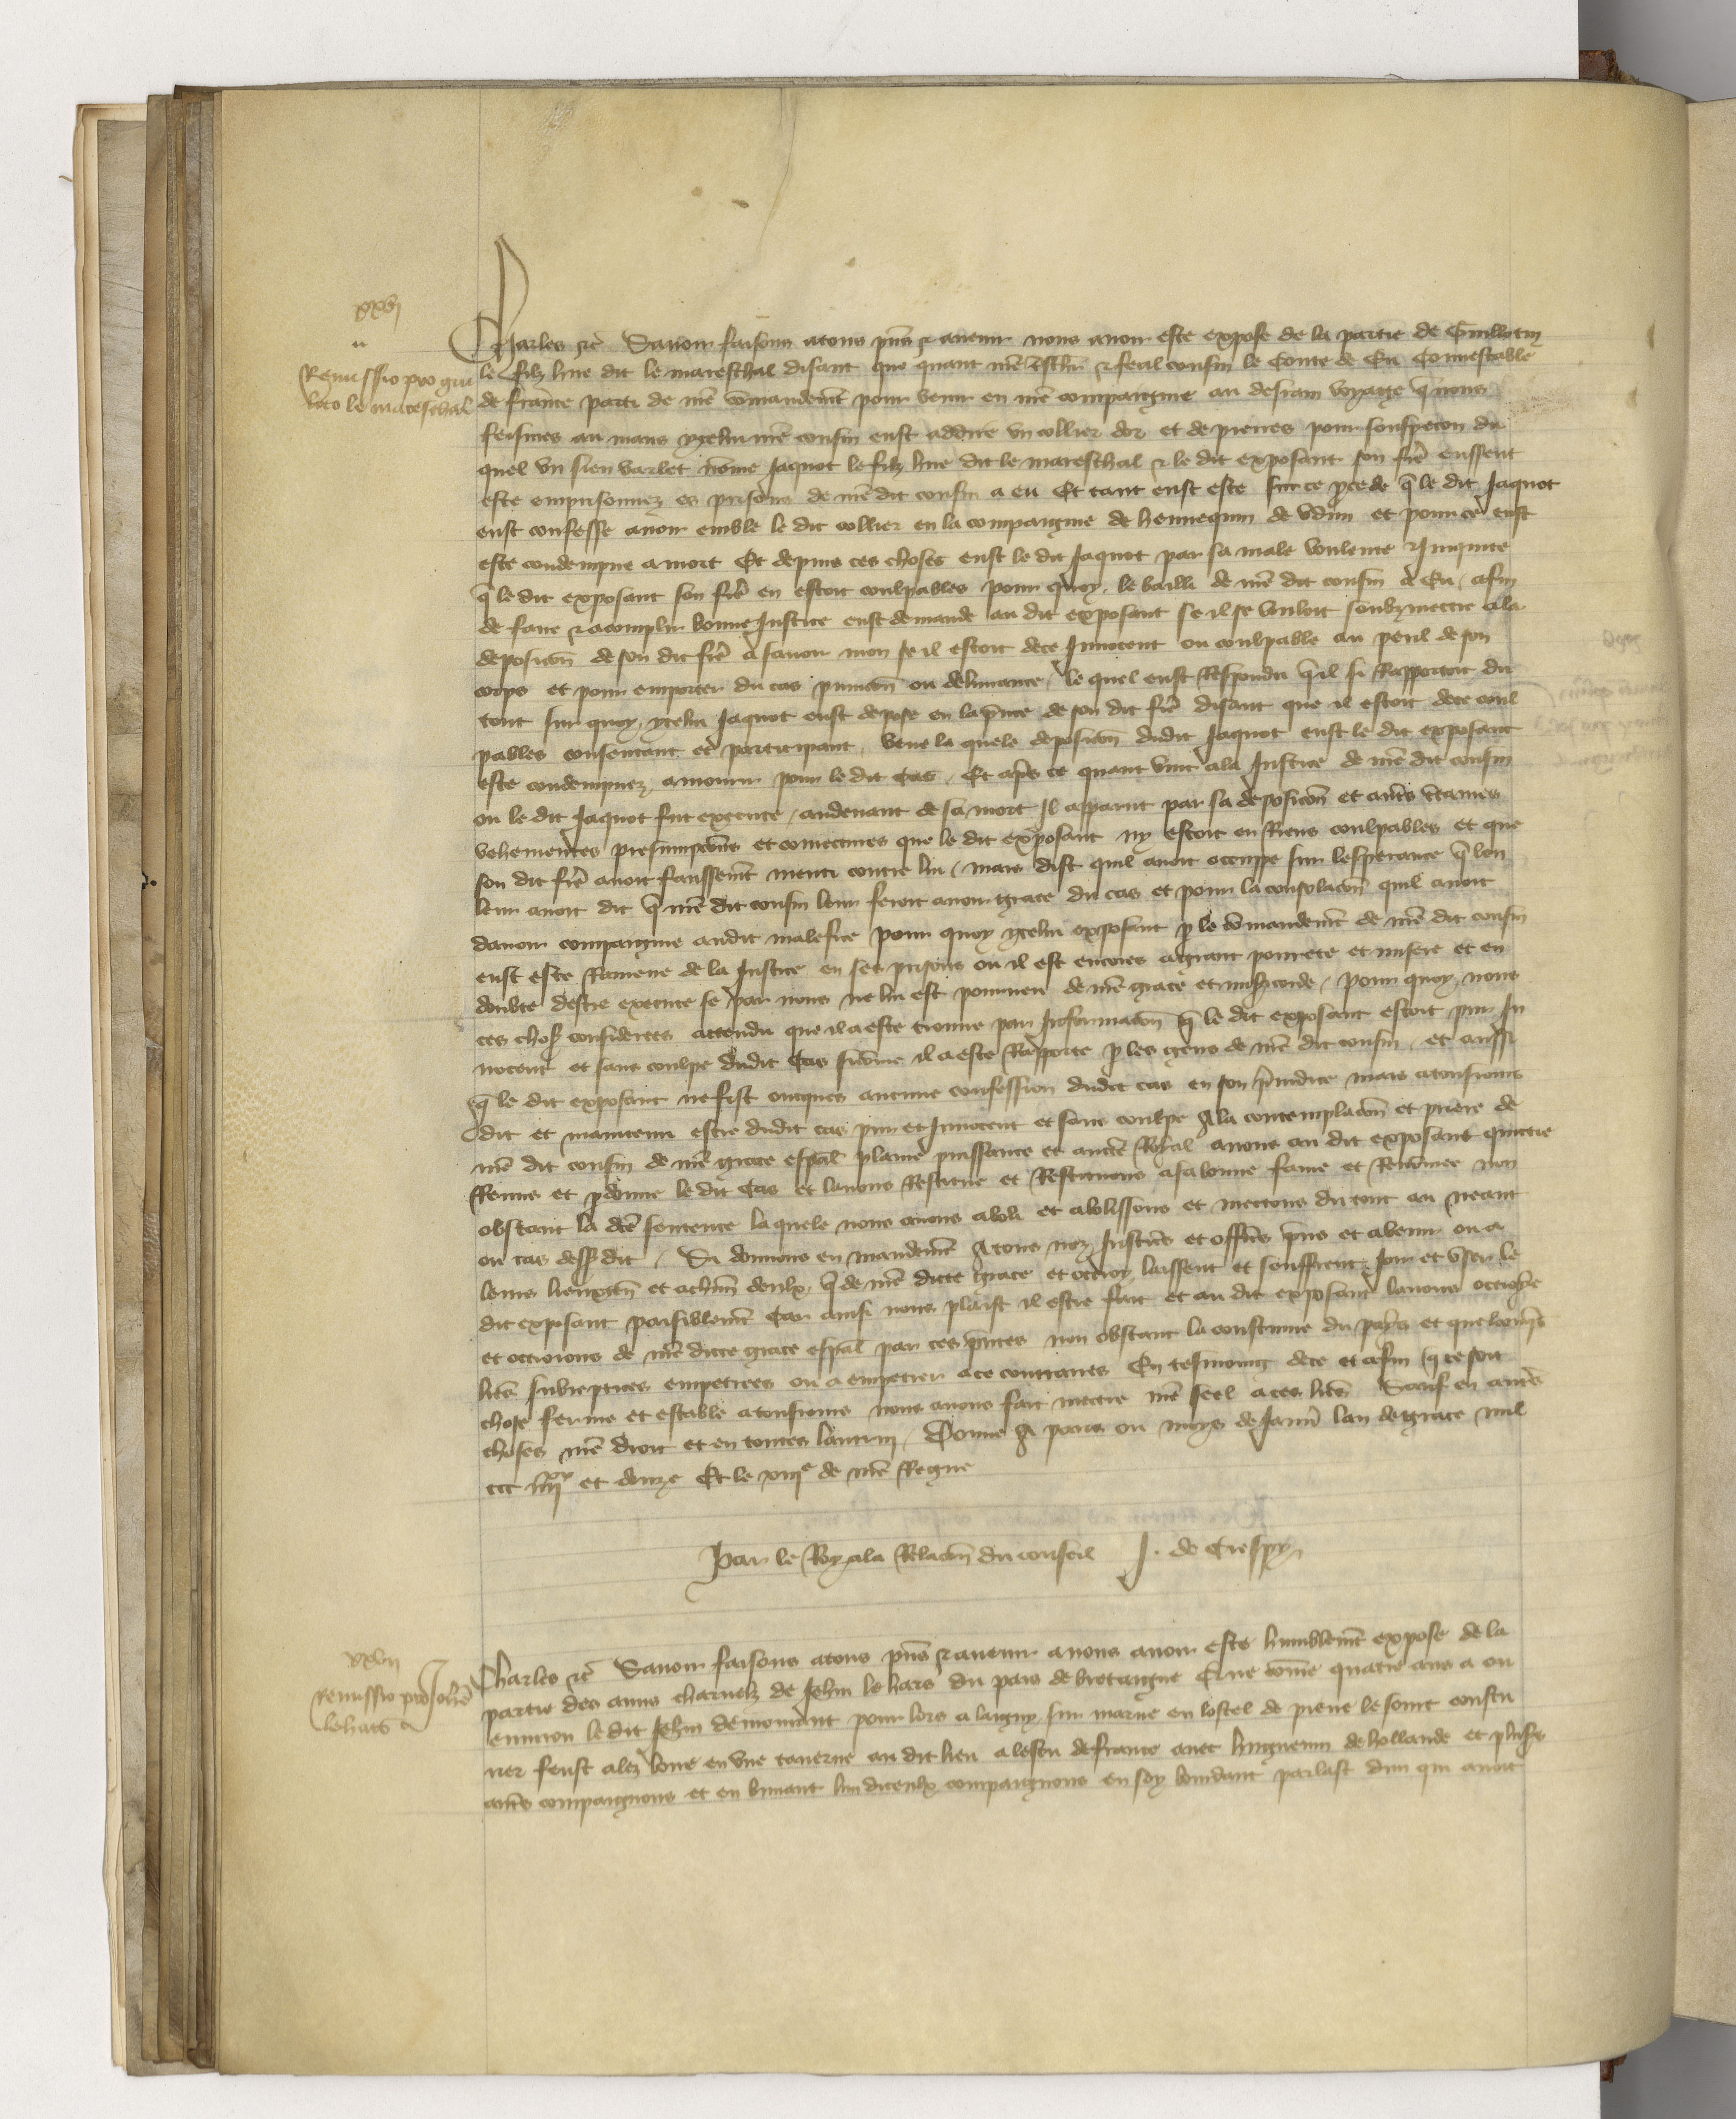 xxvj
Remissio pro gui
loto le mareschal
Charles etc Savoir faisons a tous pñs et avenir nous avoir este expose de la partie de Guillotin
le filz hue dit le mareschal disant que quant nrẽ treschier et feal cousin le Conte de Eu Connestable
de france parti de nrẽ commandemt pour venir en nrẽ compaignie au derrain voyage q̃ nous
feismes au mans ycelui nrẽ cousin eust adiré un collier dor et de pierres pour souspecon du
quel un sien varlet nõme Jaquot le filz hue dit le mareschal et le dit exposant son frẽ eussent
este emprisonnez es prisons de nrẽ dit cousin a eu Et tant eust este sur ce procede q̃ le dit Jaquot
eust confesse avoir emble le dit collier en la compaignie de hennequin de udim et pour ce eust
este condempne a mort Et depuis ces choses eust le dit Jaquot par sa male voulente et Iniquite
q̃ le dit exposant son frẽ en estoit coulpables pour quoy le bailli de nrẽ dit cousin a Eu afin
de faire et acomplir bonne Justice eust demande au dit exposant se il se vouloit soubzmettre a la
deposicõn de son dit frẽ a savoir mon se il estoit de ce Innocent ou coulpable au peril de son
corps et pour emporter du cas punicõn ou delivrance le quel eust Respondu q̃ il si Rapportoit du
tout sur quoy ycelui Jaquot eust depose en la pñce de son dit frẽ disant que il estoit de ce coul
pables consentant et participant veue la quele deposicõn dudit Jaquot eust le dit exposant
este condempnez a mourir pour le dit cas Et apres ce quant vint a la Justice de nrẽ dit cousin
ou le dit Jaquot fut execute audevant de sa mort Il apparut par sa deposicõn et autres certaines
vehementes presumpcions et coniectures que le dit exposant ny estoit en Riens coulpables et que
son dit frẽ avoit faussemt menti contre lui mais dist quil avoit occupe sur lesperance q̃ len
leur avoit dit q̃ nrẽ dit cousin leur feroit avoir grace du cas et pour la consolacõn quil avoit
davoir compaignie audit malefice pour quoy ycelui exposant p le cõmandemt de nrẽ dit cousin
eust este Ramene de la Justice en ses prisons ou il est encores a grant povrete et misere et en
doubte destre execute se par nous ne lui est pourveu de nrẽ grace et misericorde pour quoy nous
ces choses considerees attendu que il a este trouve par Informacõn q̃ le dit exposant estoit pur In
nocent et sans coulpe dudit cas sicõme il a este Rapporte p les gens de nrẽ dit cousin et aussi
q̃ le dit exposant ne fist oncques aucune confession dudit cas en son preiudice mais a tousiours
dit et maintenu estre dudit cas pur et Innocent et sans coulpe A la contemplacõn et priere de
nrẽ dit cousin de nrẽ grace espãl plaine puissance et aucte Royal avons au dit exposant quictie
Remis et p̃donne le dit cas et lavons Restitue et Restituons a sa bonne fame et Renõmee non
obstant la dcẽ sentence la quele nous avons aboli et abolissons et mectons du tout au neant
ou cas dessusdit Si donnons en mandemt A tous noz Justiciers et officiers pñs et avenir ou a
leurs lieuxten et a chun deulx q̃ de nrẽ dicte grace et octroy laissent et seuffrent Joir et user le
dit exposant paisiblemt Car ainsi nous plaist il estre fait et au dit exposant lavons octroye
et octroions de nrẽ dicte grace espãl par ces pñtes non obstant la coustume du pays et quelconq̃s
lrẽs subreptices empetrees ou a empetrer a ce contraires En tesmoing de ce et afin q̃ ce soit
chose ferme et estable a tousiours nous avons fait mectre nrẽ seel a ces lrẽs Sauf en autres
choses nrẽ droit et en toutes lautruy Donne A paris ou moys de Janvr lan de grace mil
ccc iiijxx et douze Et le xiije de nrẽ Regne
Par le Roy a la Relacõn du conseil J. de Crespy
xxvij
Remissio pro Johẽ
le hars
Charles etc Savoir faisons a tous pñs et avenir a nous avoir este humblemt expose de la
partie des amis charnelz de Jehan le hars du pais de bretaigne Que cõme quatre ans a ou
environ le dit Jehan demourant pour lors a laigny sur marne en lostel de pierre le sont coustu
rier feust alez boire en une taverne au dit lieu a lescu de france avec huguenin de hollande et plusrs
autres compaignons et en buvant lun diceulx compaignons en soy bourdant parlast dun qui avoit